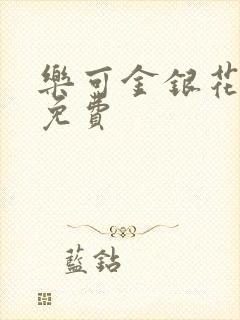 樂可金銀花
免費
藍鈷